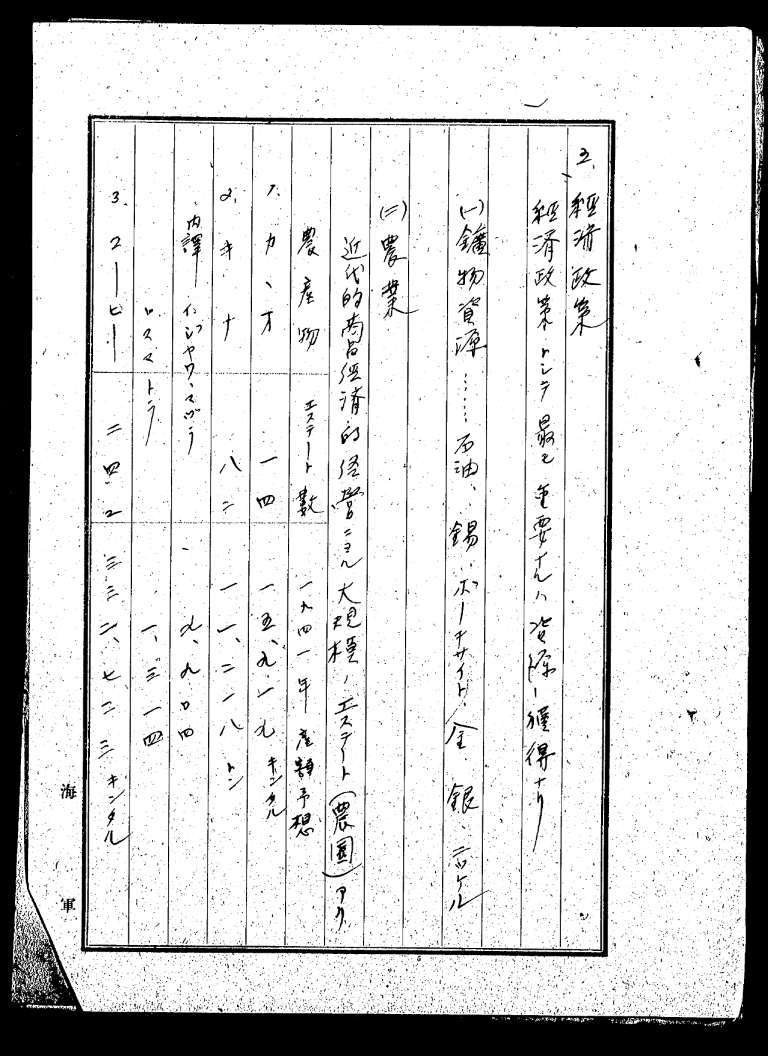 3、經済政策
経済政策トシテ最モ重要ナルハ資源ノ獲得ナリ
(一)鑛物資源……石油、錫、ボーキサイト、金、銀、ニッケル
(二)農業
近代的商品経済的経営ニヨル大規模ノエステート(農園)アリ
農産物 エステート數 一九四一年産額予想
1. カカオ 一四 一五、九一九 キンタル
2. キナ 八二 一一、二一八 トン
内譯 ジャワ、マヅラ 九、九〇四
スマトラ 一、三一四
3. コーヒー 二四二 三三二、七二三 キンタル
海軍